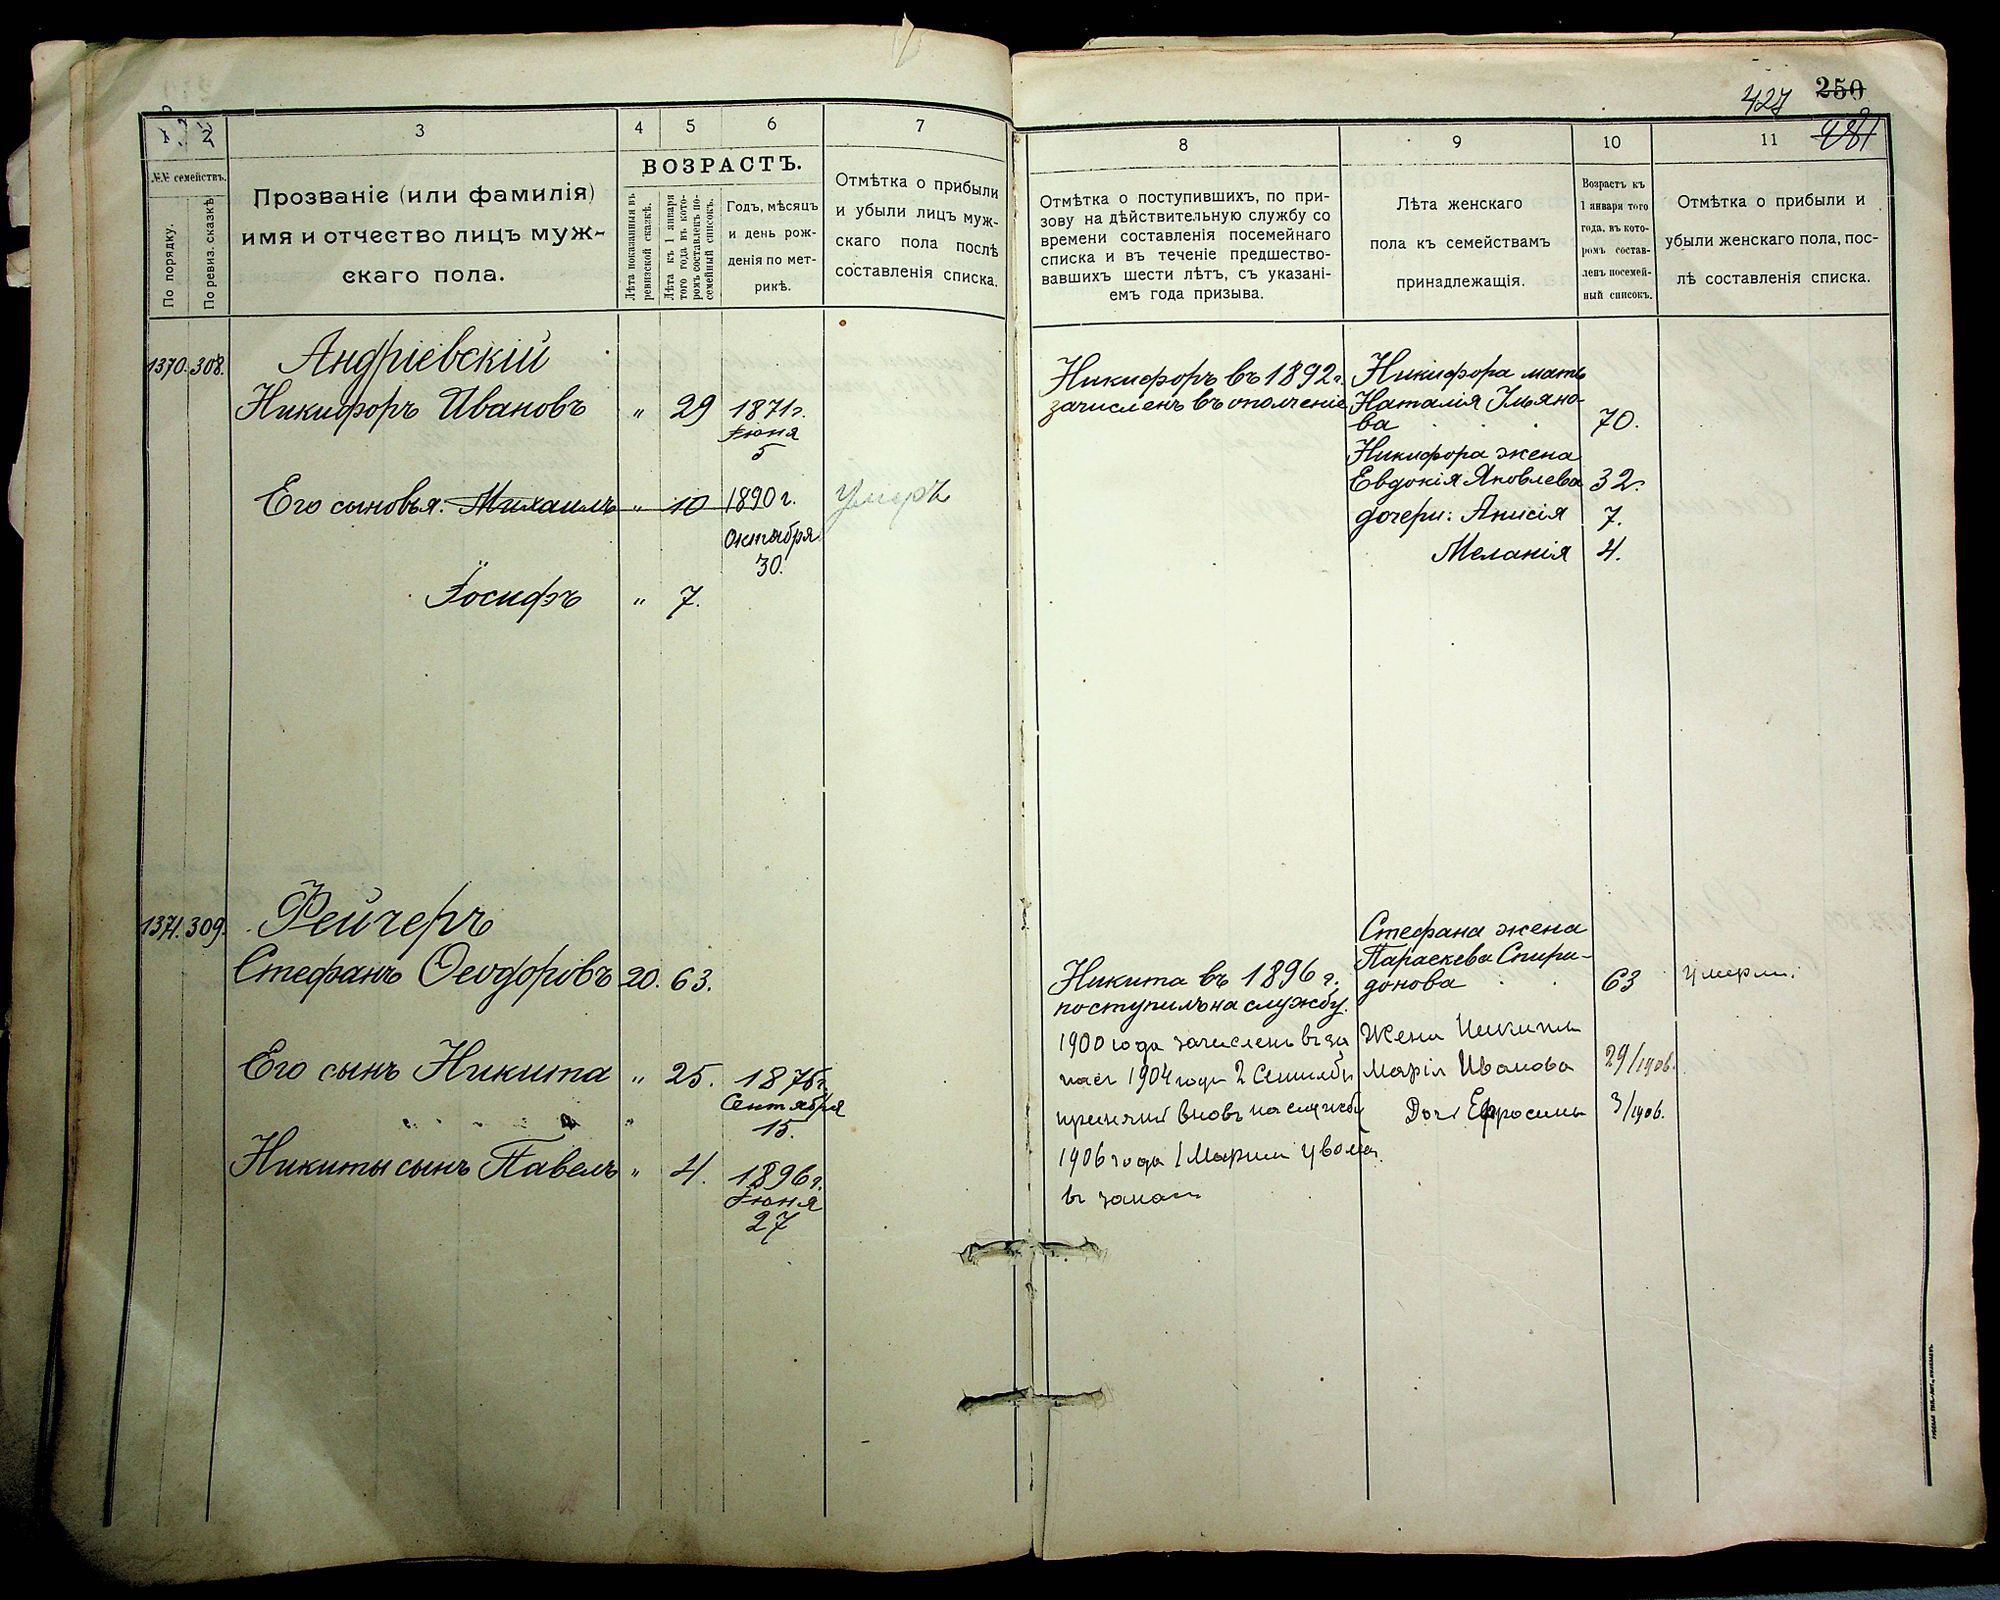 427 250
481
1 2 3 4 5 6 7
№№ семействъ.
По порядку.
По ревиз. сказкѣ
Прозваніе (или фамилія)
имя и отчество лицъ муж-
скаго пола.
ВОЗРАСТЪ.
Лѣта показанныя въ
ревизской сказкѣ.
Лѣта къ 1 января
того года въ кото-
ромъ составленъ по-
семейный списокъ.
Годъ, мѣсяцъ
и день рож-
денія по мет-
рикѣ.
Отмѣтка о прибыли
и убыли лицъ муж-
скаго пола послѣ
составленія списка.
1370. 308. Андріевскій
Никифоръ Ивановъ " 29 1871г.
Іюня
5
Его сыновья: Михаилъ " 10 1890 г. умеръ
Октября
30.
Іосифъ " 7.
1371. 309. Рейчеръ
Стефанъ Ѳеодоровъ 20. 63.
Его сынъ Никита " 25. 1875г.
Сентября
15.
Никиты сынъ Павелъ " 4. 1896г.
Іюня
27
8 9 10 11
Отмѣтка о поступившихъ, по при-
зову на дѣйствительную службу со
времени составленія посемейнаго
списка и въ теченіе предшество-
вавшихъ шести лѣтъ, съ указані-
емъ года призыва.
Лѣта женскаго
пола къ семействамъ
принадлежащія.
Возрастъ къ
1 января того
года, въ кото-
ромъ состав-
ленъ посемей-
ный списокъ.
Отмѣтка о прибыли и
убыли женскаго пола, пос-
лѣ составленія списка.
Никифоръ въ 1892 г.
зачисленъ въ ополченіе
Никифора мать
Наталія Ульяно-
ва 70.
Никифора жена
Евдокія Яковлева 32.
дочери: Анисія 7.
Меланія 4.
Никита въ 1896 г.
поступилъ на службу.
1900 года зачисленъ въ за
пасъ 1904 года 2 Сентяб
принятъ вновь на службу
1906 года 1 Марта увол.
въ запасъ
Стефана жена
Параскева Спири-
донова 63 умерла.
Жена Никиты
Марія Иванова 29/1906.
Дочь Ефросинья 3/1906.